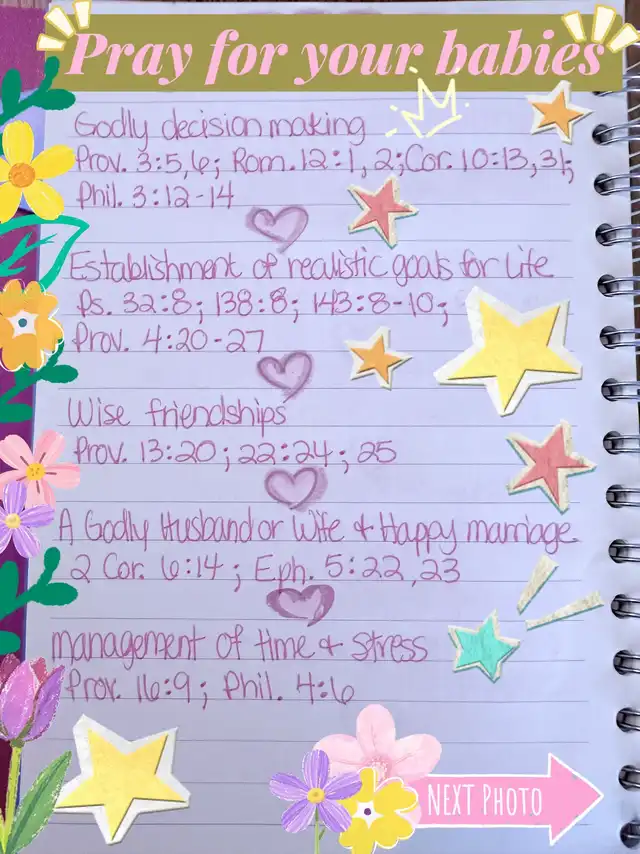 Pray for your babies
Godly decision making
Prov. 3:5,6; Rom. 12:1, 2; Cor. 10:13, 31;
Phil. 3:12-14
Establishment of realistic goals for life
Ps. 32:8; 138:8; 143:8-10;
Prov. 4:20-27
Wise friendships
Prov. 13:20; 22:24; 25
A Godly Husband or Wife + Happy marriage
2 Cor. 6:14; Eph. 5:22,23
management of time + stress
Prov. 16:9; Phil. 4:6
NEXT PHOTO